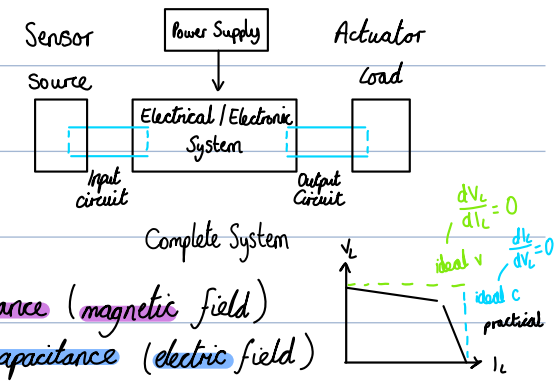 Sensor
Power Supply
Actuator
Source
Load
Electrical / Electronic
System
Input
circuit
Output
Circuit
Complete System
dV_L/dI_L = 0
dI_L/dV_L = 0
V_L
ideal v
ideal c
practical
I_L
(magnetic field)
(electric field)